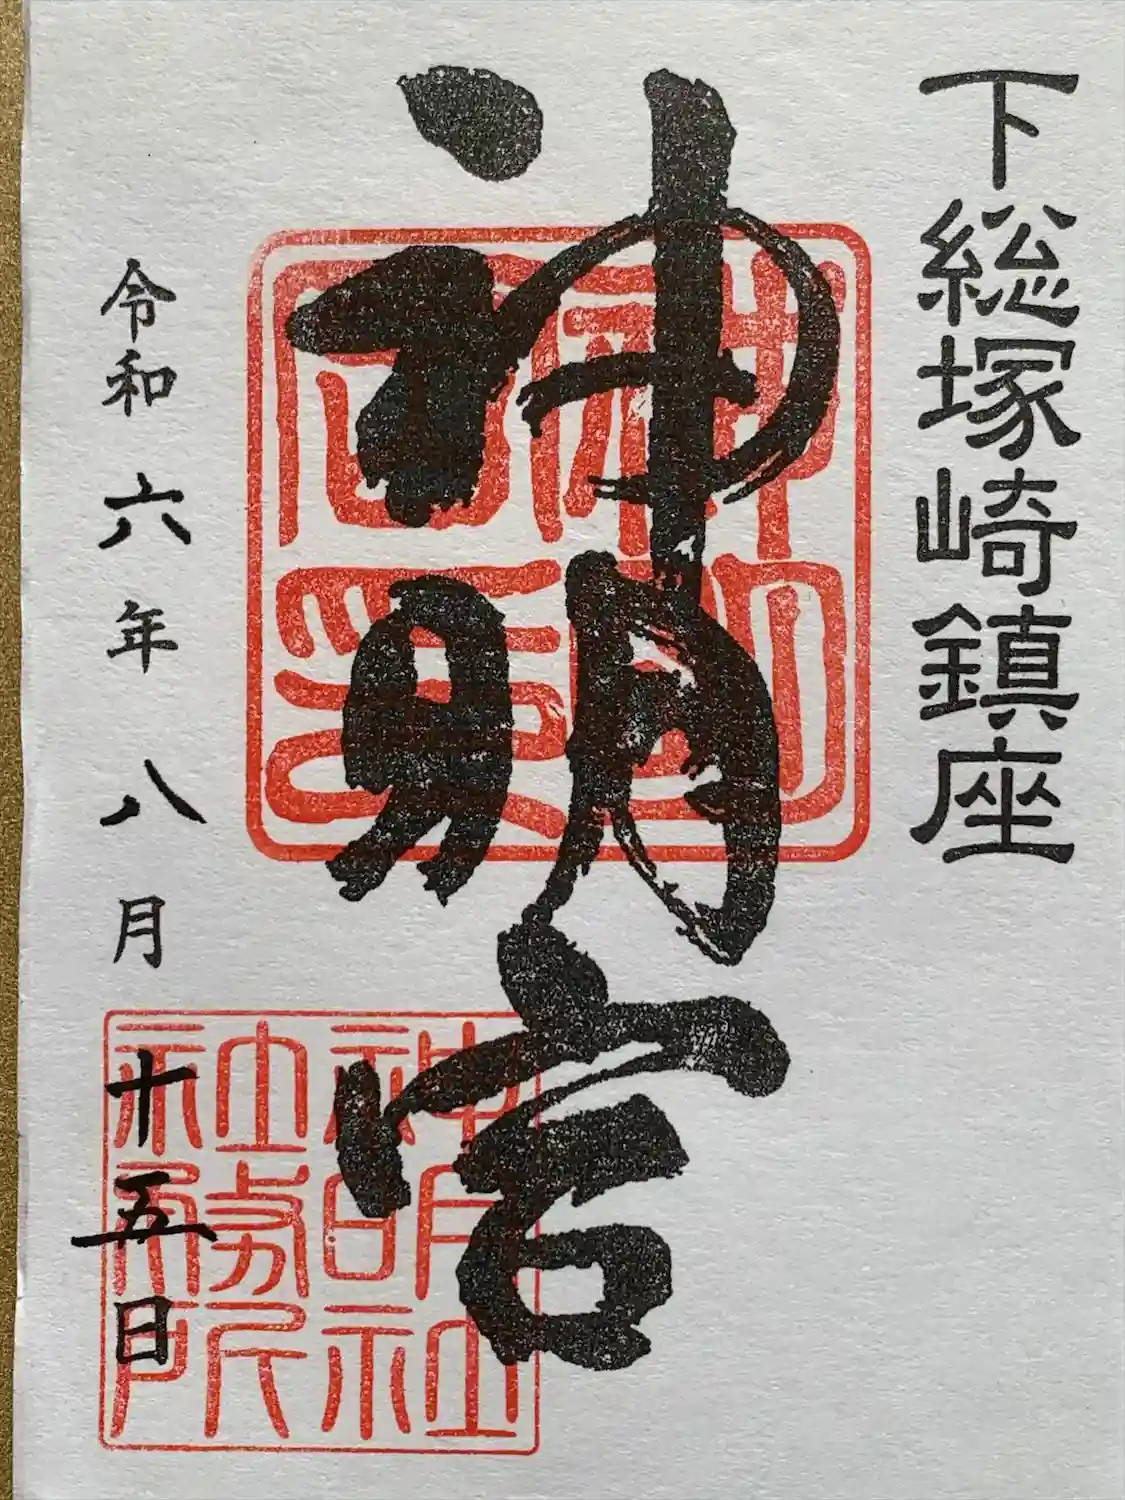 下総塚崎鎮座
神明宮
神明社
社務所
令和六年八月十五日